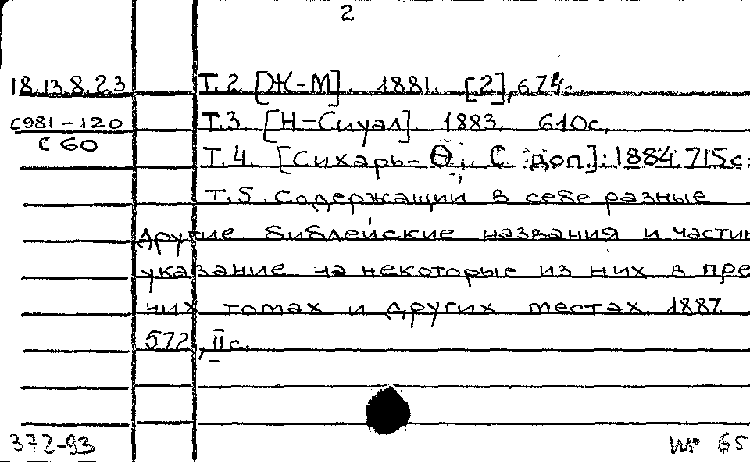 2
18.13.8.23 Т.2 [Ж-М]. 1881. [2], 674с.
С981-120 Т.3 [Н-Сиуал] 1883. 610с.
С 60 Т.4. [Сихарь-Ѳ; С доп]. 1884 715с.
Т.5. Содержащий в себе разные
другие библейские названия и части
указание на некоторые из них в пре
них томах и других местах. 1887.
572, II с.
372-93 65